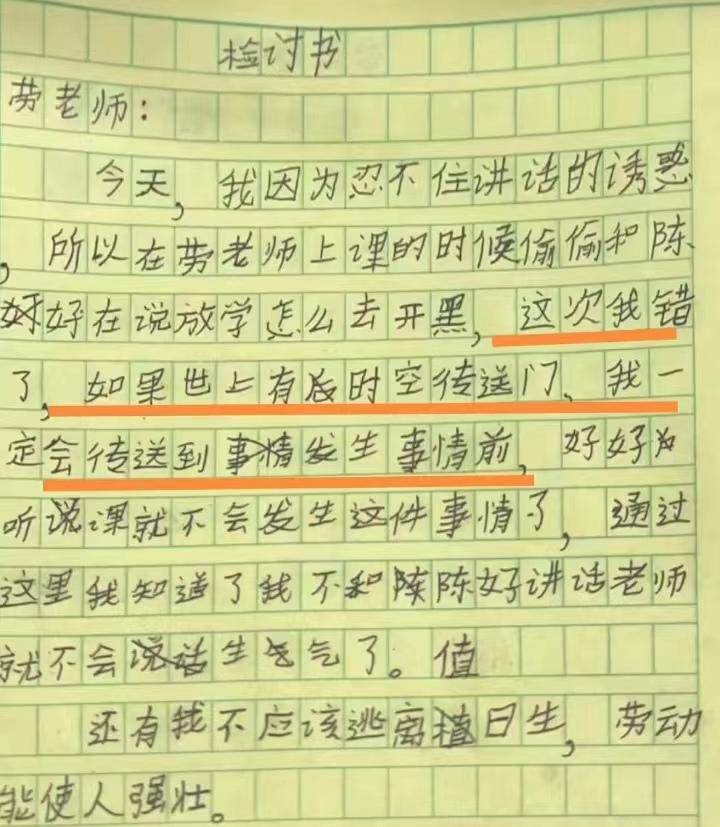 检讨书
劳老师：
今天，我因为忍不住讲话的诱惑
，所以在劳老师上课的时候偷偷和陈
好好在说放学怎么去开黑，这次我错
了，如果世上有时空传送门，我一
定会传送到事情发生事情前，好好
听说课就不会发生这件事情了，通过
这里我知道了我不和陈陈好讲话老师
就不会说话生气了。值
还有我不应该逃离值日生，劳动
能使人强壮。